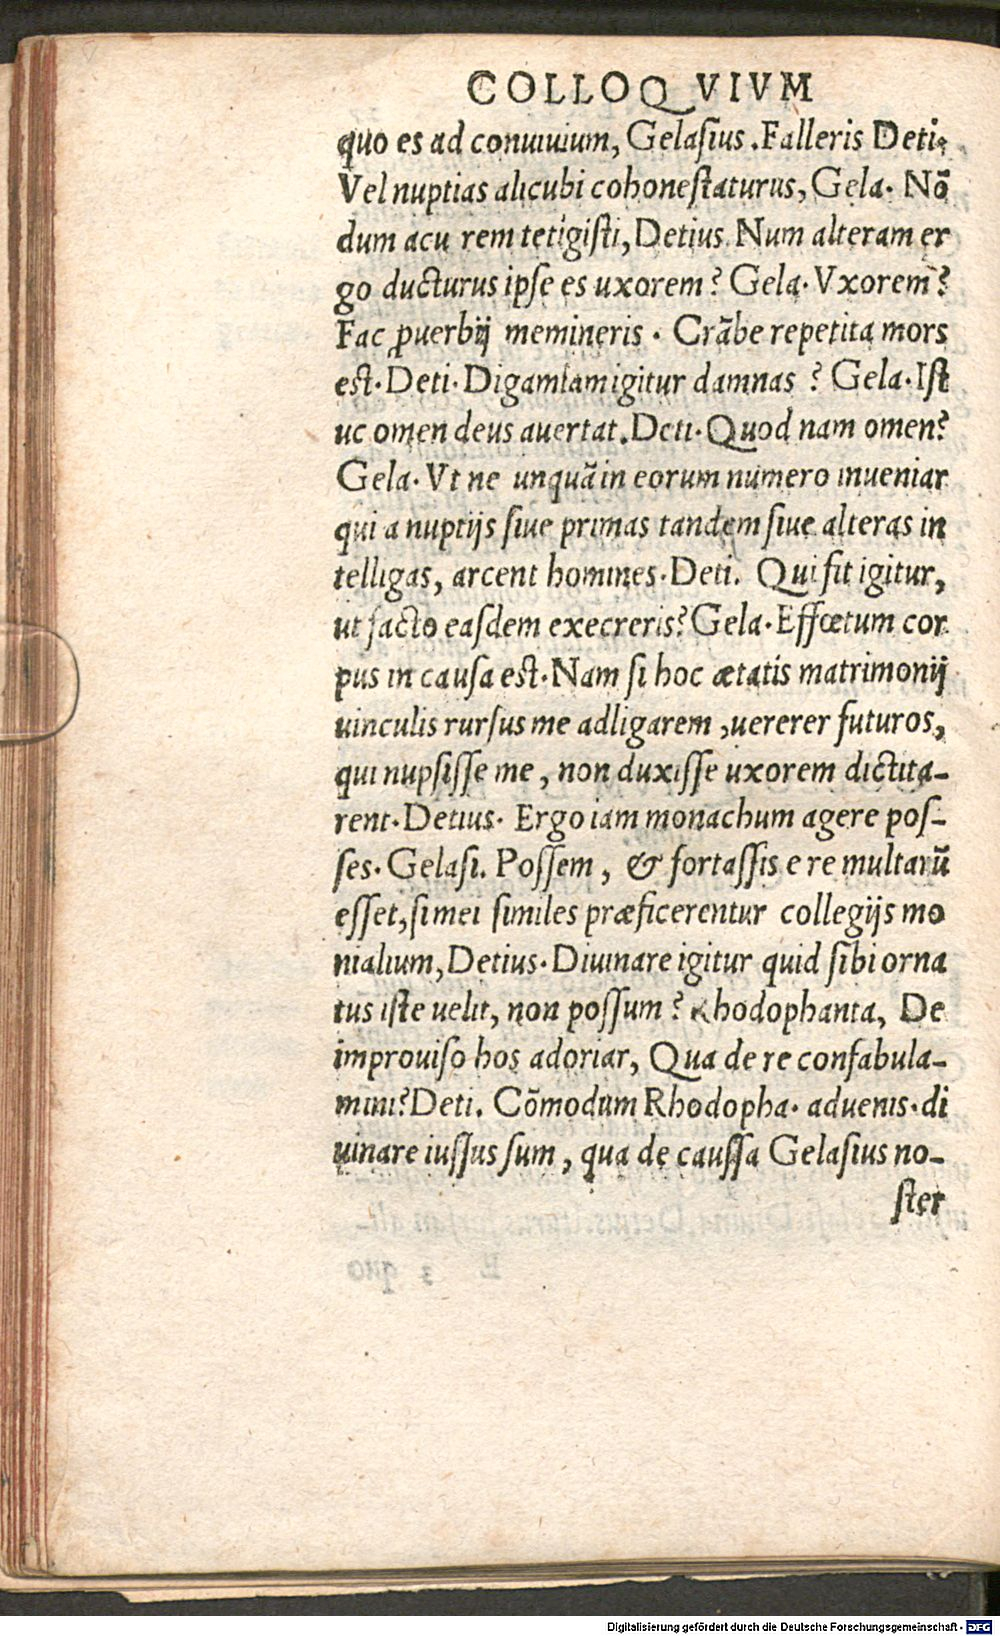 COLLOQVIVM
quo es ad conuiuium, Gelasius. Falleris Deti.
Vel nuptias alicubi cohonestaturus, Gela. Nō
dum acu rem tetigisti, Detius. Num alteram er
go ducturus ipse es uxorem? Gela. Vxorem?
Fac ꝓuerbij memineris. Crābe repetita mors
est. Deti. Digamiam igitur damnas? Gela. Ist
uc omen deus auertat. Deti. Quod nam omen?
Gela. Vt ne unquā in eorum numero inueniar
qui a nuptijs siue primas tandem siue alteras in
telligas, arcent homines. Deti. Qui fit igitur,
ut facto easdem execreris? Gela. Effœtum cor
pus in causa est. Nam si hoc ætatis matrimonij
uinculis rursus me adligarem, uererer futuros,
qui nupsisse me, non duxisse uxorem dictita-
rent. Detius. Ergo iam monachum agere pos-
ses. Gelasi. Possem, & fortassis e re multarū
esset, si mei similes præficerentur collegijs mo
nialium, Detius. Diuinare igitur quid sibi orna
tus iste uelit, non possum? Rhodophanta, De
improuiso hos adoriar, Qua de re confabula-
mini? Deti. Cōmodum Rhodopha. aduenis. di
uinare iussus sum, qua de caussa Gelasius no-
ster
Digitalisierung gefördert durch die Deutsche Forschungsgemeinschaft - DFG